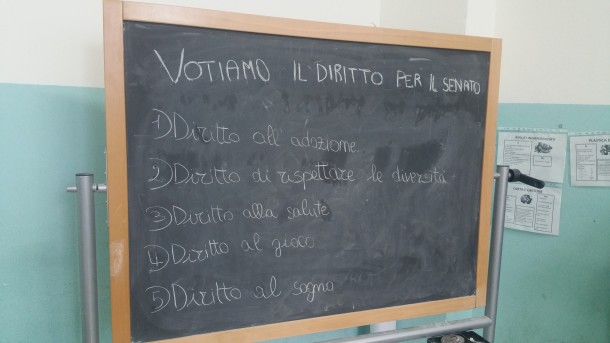 VOTIAMO IL DIRITTO PER IL SENATO
1) Diritto all'adozione.
2) Diritto di rispettare le diversità
3) Diritto alla salute
4) Diritto al gioco
5) Diritto al sogno